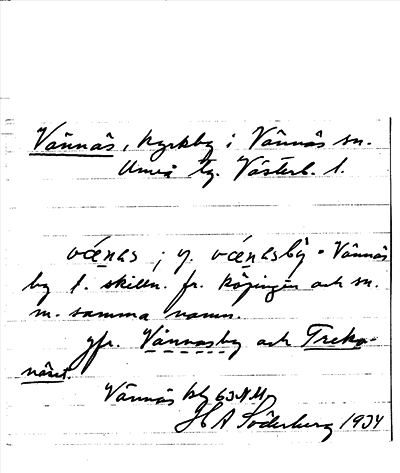 Vännäs, kyrkby i Vännäs sn.
Umeå tg. Västerb. l.
vǽnəs; y. vǽnəsby = Vännäs
by t. skilln. fr. köpingen och sn.
m. samma namn.
Jfr. Vännasby och Treko-
näset.
Vännäs kbl 63 N.M.
H A Söderberg 1934